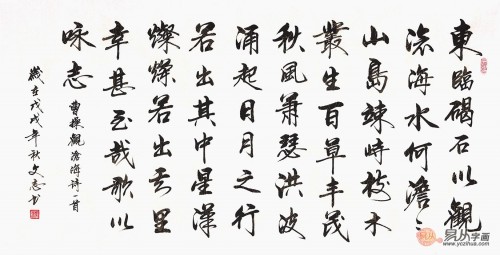 東臨碣石以觀
滄海水何澹〻
山島竦峙樹木
叢生百草丰茂
秋風蕭瑟洪波
涌起日月之行
若出其中星漢
燦爛若出其里
幸甚至哉歌以
咏志
曹操觀滄海詩一首
歲在戊戌年秋文志书
易从字画
www.yczihua.com